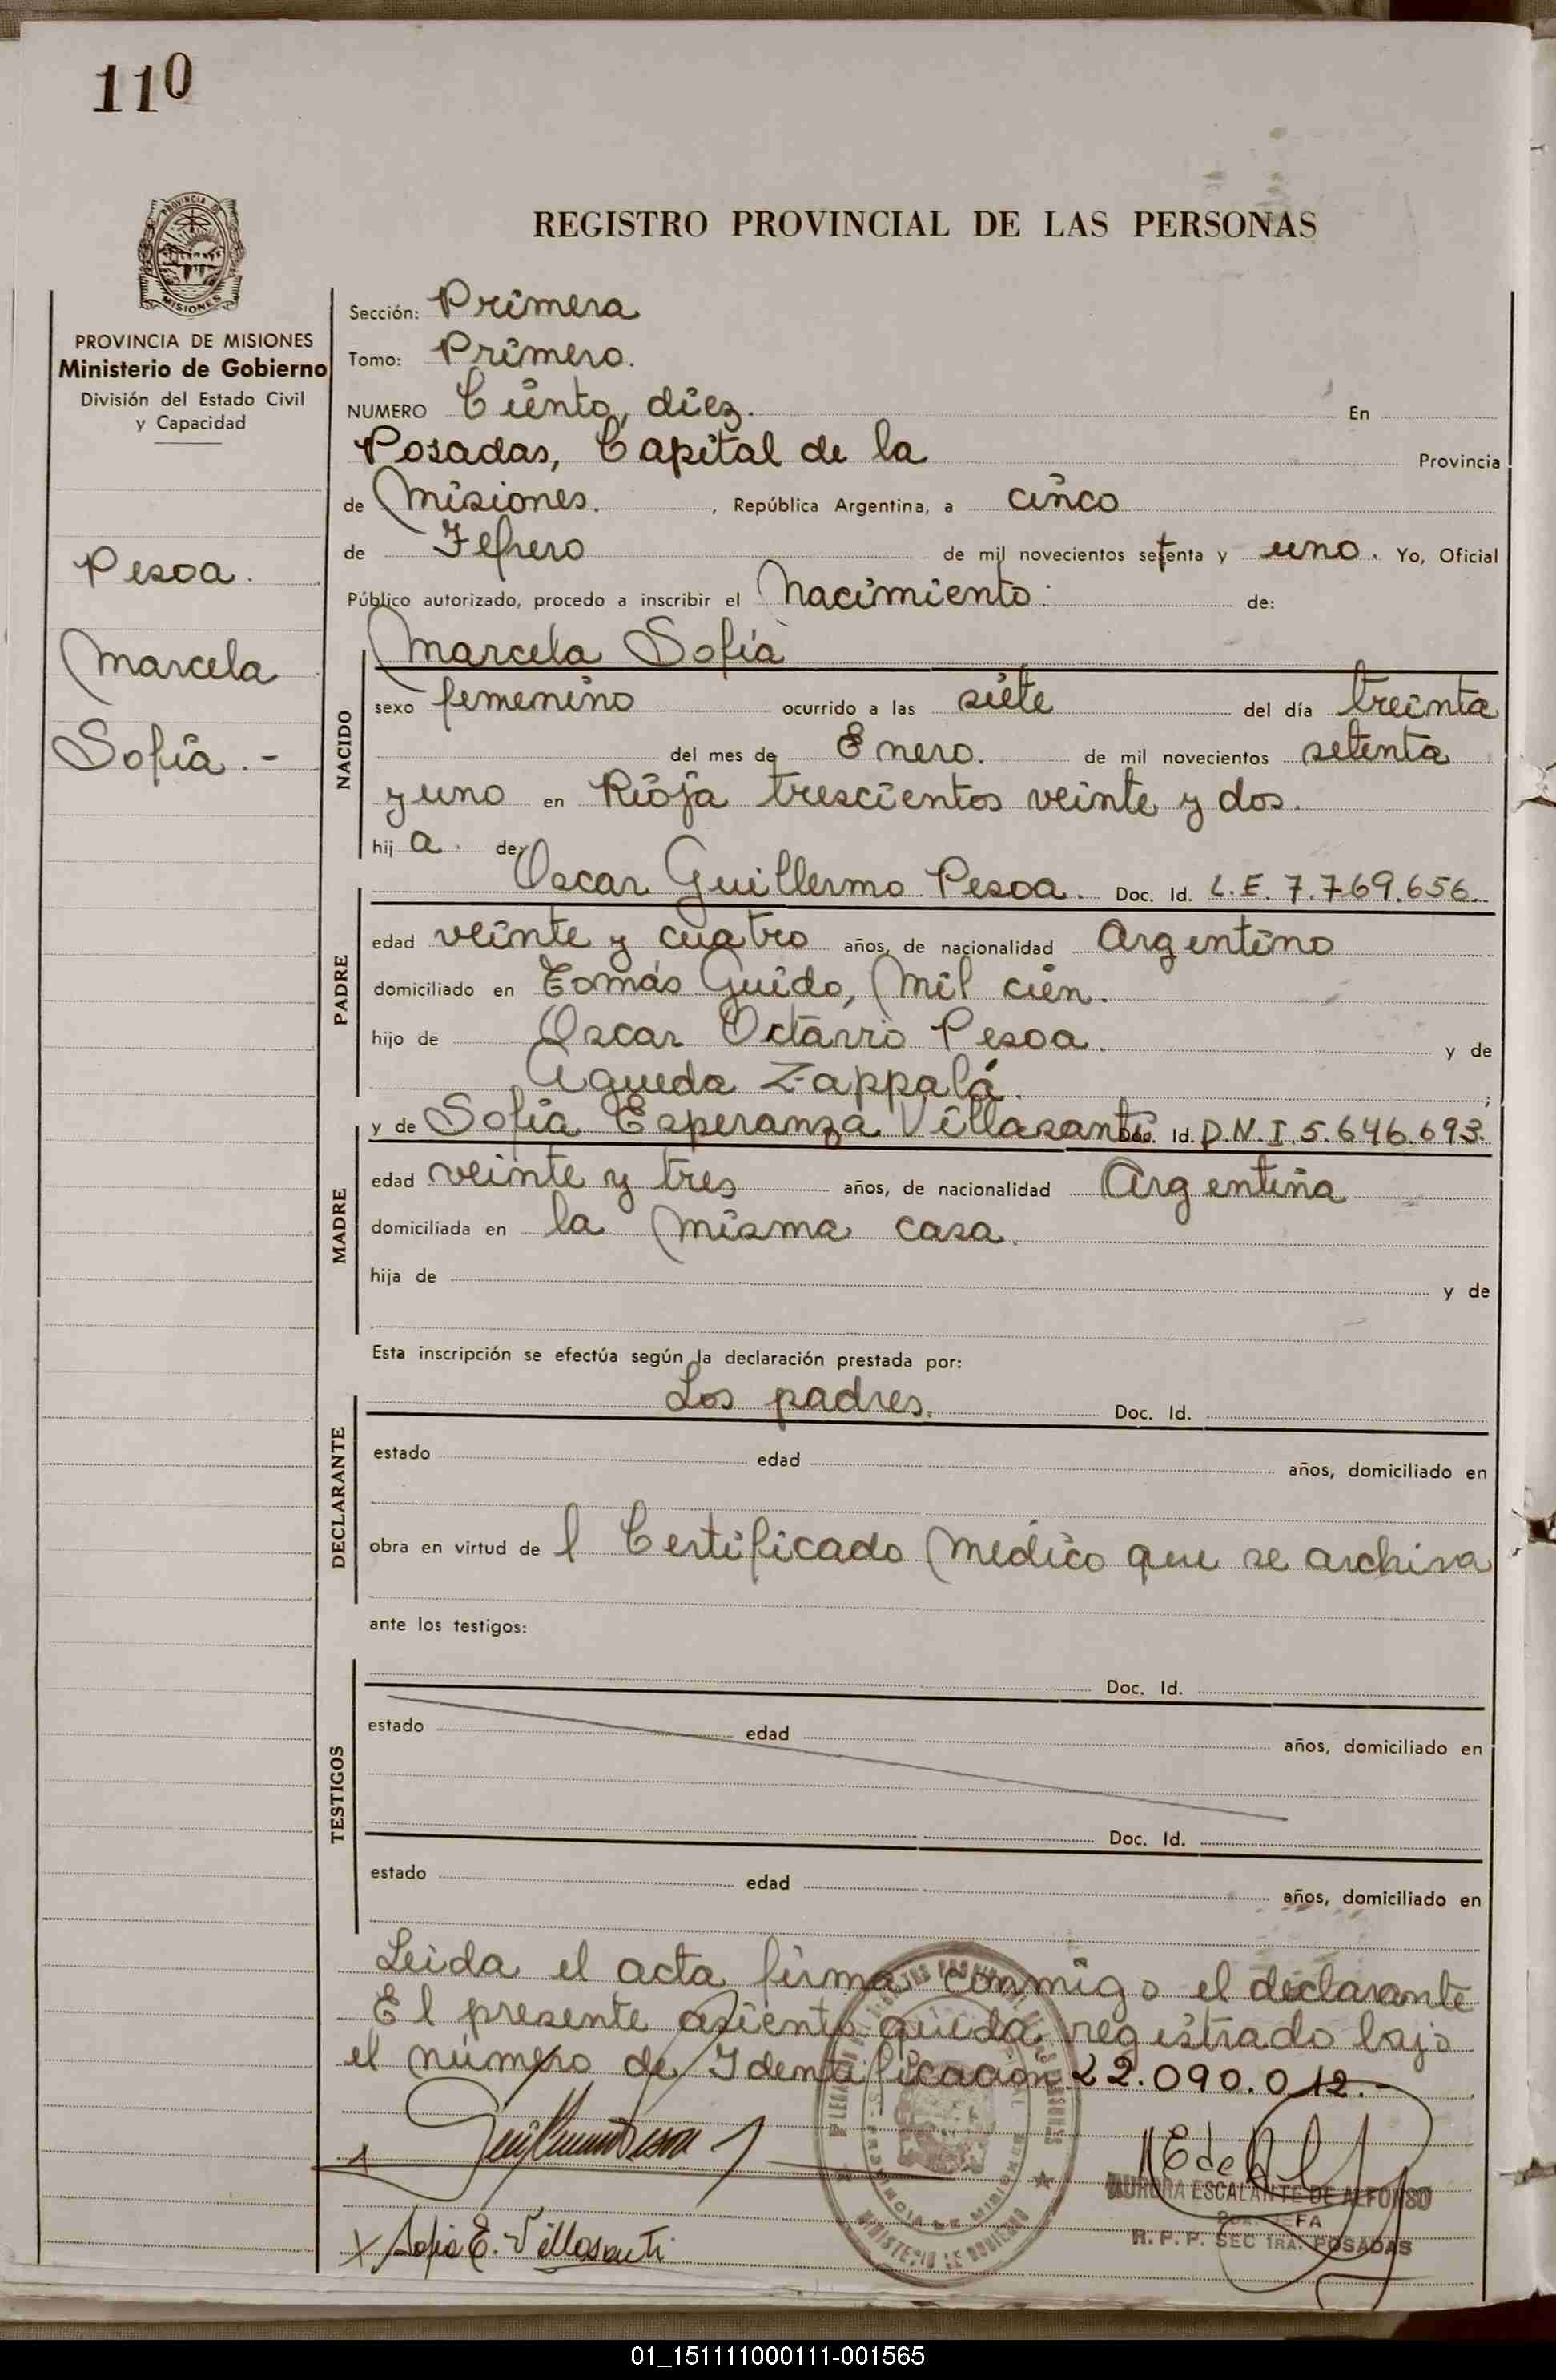 110
PROVINCIA DE
MISIONES
PROVINCIA DE MISIONES
Ministerio de Gobierno
División del Estado Civil
y Capacidad
Pesoa.
Marcela
Sofía.-
REGISTRO PROVINCIAL DE LAS PERSONAS
Sección: Primera
Tomo: Primero.
NUMERO Ciento, diez. En
Posadas, Capital de la Provincia
de Misiones. , República Argentina, a cinco
de Febrero de mil novecientos setenta y uno. Yo, Oficial
Público autorizado, procedo a inscribir el Nacimiento: de:
Marcela Sofía
NACIDO
sexo femenino ocurrido a las siete del día treinta
del mes de Enero. de mil novecientos setenta
y uno en Rioja trescientos veinte y dos.
hij a. de:
Oscar Guillermo Pesoa. Doc. Id. L.E. 7.769.656.
PADRE
edad veinte y cuatro años, de nacionalidad Argentino
domiciliado en Tomás Guido, Mil cien.
hijo de Oscar Octavio Pesoa. y de
Agueda Zappalá. ;
y de Sofía Esperanza Villasanti Doc. Id. D.N.I. 5.646.693.
MADRE
edad veinte y tres años, de nacionalidad Argentina
domiciliada en la misma casa.
hija de y de
Esta inscripción se efectúa según la declaración prestada por:
Los padres. Doc. Id.
DECLARANTE
estado edad años, domiciliado en
obra en virtud de l Certificado Medico que se archiva
ante los testigos:
Doc. Id.
TESTIGOS
estado edad años, domiciliado en
Doc. Id.
estado edad años, domiciliado en
Leida el acta firma conmigo el declarante
El presente asiento queda registrado bajo
el número de Identificación 22.090.012.-
MINISTERIO DE GOBIERNO
PROVINCIA DE MISIONES
AURORA ESCALANTE DE ALFONSO
R. P. P. SEC 1RA. POSADAS
X Sofia E. Villasanti
01_151111000111-001565